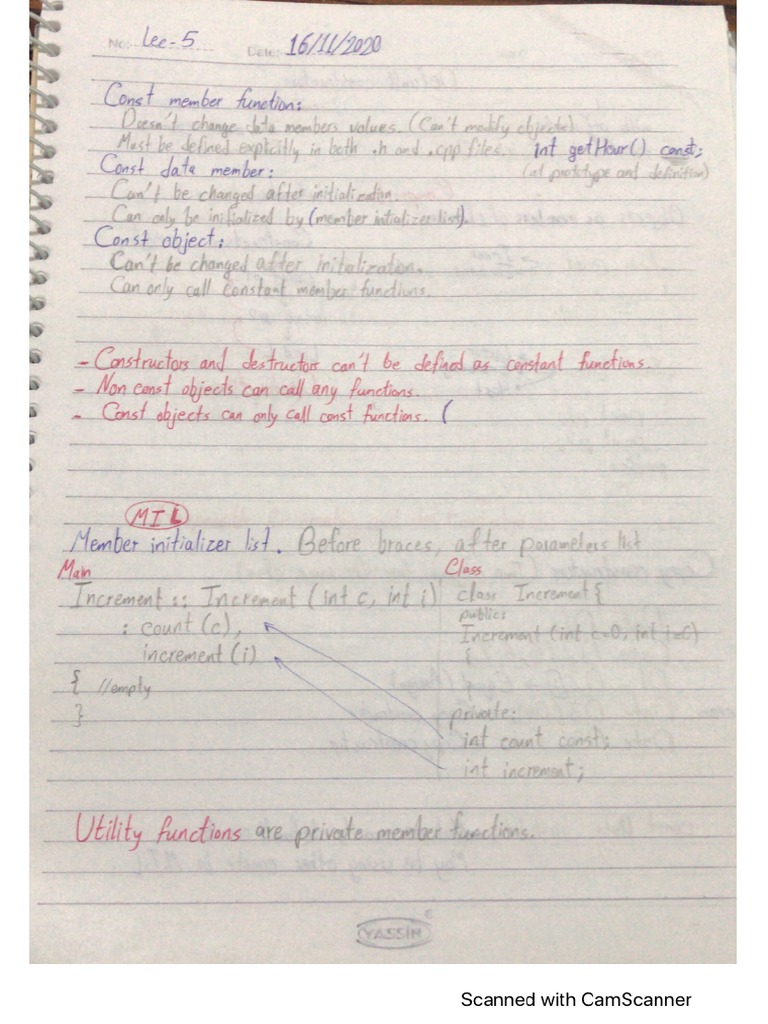 No:- Lec-5 Date:- 16/11/2020
Const member function:
Doesn't change data members values. (Can't modify objects)
Must be defined explicitly in both .h and .cpp files. int getHour() const;
Const data member: (at prototype and definition)
Can't be changed after initialization.
Can only be initialized by (member intializer list).
Const object:
Can't be changed after initalization.
Can only call constant member functions.
- Constructors and destructors can't be defined as constant functions.
- Non const objects can call any functions.
- Const objects can only call const functions. (
MIL
Member initializer list. Before braces, after parameters list
Main Class
Increment :: Increment (int c, int i) class Increment {
: count (c), public:
increment (i) Increment (int c=0, int i=0)
{ //empty {
} private:
int count const;
int increment;
Utility functions are private member functions.
YASSIN
Scanned with CamScanner